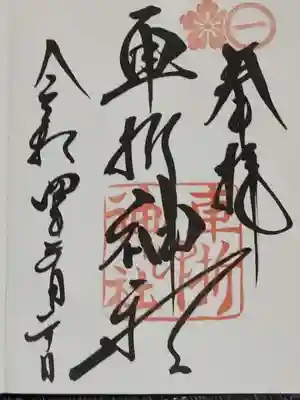 一
奉拝
車折神社
車折
神社
令和四年月日